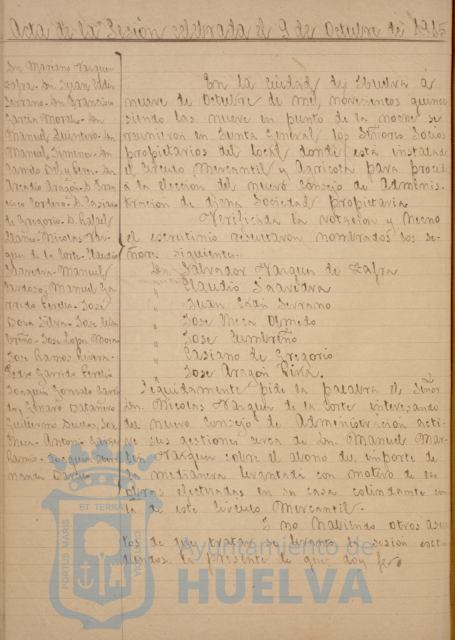 Acta de la Sesión celebrada el 9 de Octubre de 1915
Dn Mariano Vazquez
Zafra - Dn Juan Eddis
Serrano - Dn Francisco
García Morales - Dn
Manuel Quintero - Dn
Manuel Jimeno - Dn
Camilo
Arcadio Aragón - D Fran
cisco Cordero - D Casiano
de Gregorio - D. Rafael
Nicolas Vaz
quez de la Corte - Claudio
Saavedra - Manuel
Cardoso, Manuel Ga
rrido Perelló - José
Silva - Jose Lum
breño - Jose Lopez Mora
Jose Ramos Rivera -
Pedro Garrido Perelló
Joaquin Gonzalo Garri
do y Genaro Batañero
Guillermo Jose
Checa - Antonio
Ramio - Joaquin
nandez
En la ciudad de Huelva á
nueve de Octubre de mil, novecientos quince
siendo las nueve en punto de la noche se
reunieron en Junta General los Señores Socios
propietarios del local donde está instalado
el Circulo Mercantil y Agricola para proced
á la elección del nuevo Consejo de Adminis
tración de dicha Sociedad propietaria
Verificada la votación y hecho
el escrutinio resultaron nombrados los se-
ñores siguientes.
Dn Salvador Vazquez de Zafra
" Claudio Saavedra
" Juan Eddis Serrano
" Jose Checa Olmedo
" Jose Lumbreño
" Casiano de Gregorio
" Jose Aragón Piriz.
Seguidamente pide la palabra el Señor
Dn. Nicolas Vazquez de la Corte interesando
del nuevo Consejo de Administración acti-
ve sus gestiones cerca de Dn. Manuel Mar-
tin Vazquez sobre el abono de importe de
la medianera levantada con motivo de las
obras efectuadas en su casa colindante con
la de este Circulo Mercantil.
Y no habiendo otros asun
tos de que tratar se levantó la sesión exten
diendose la presente de que doy fé
PORTUS MARIS
ET TERRAE
CUSTODIA
Ayuntamiento de
HUELVA